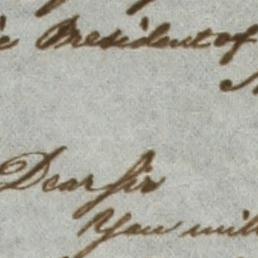 President of
Dear Sir
You will